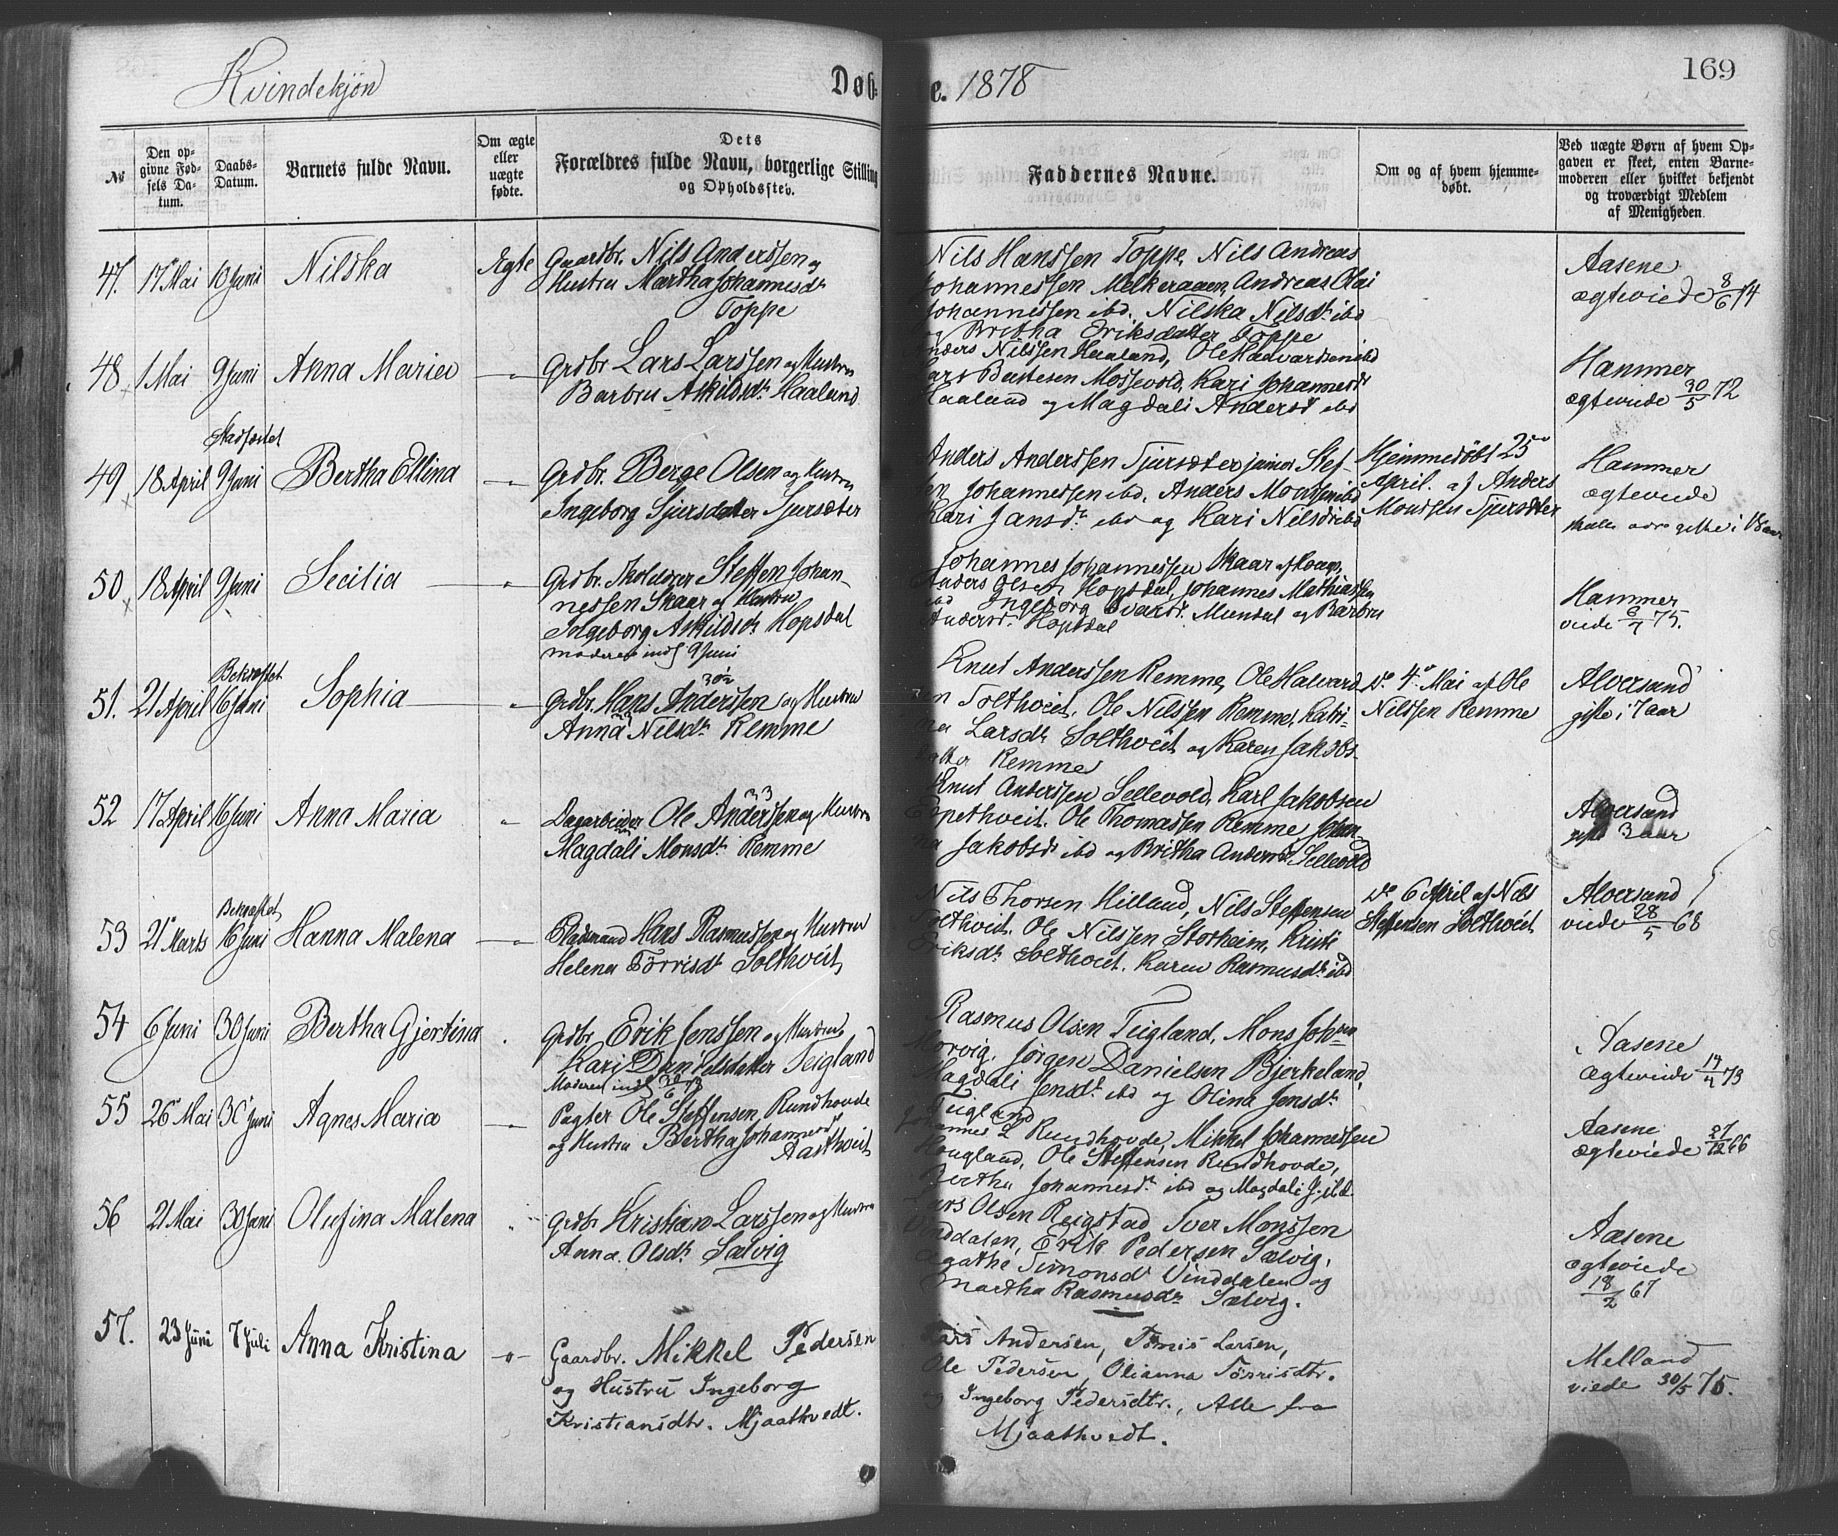 Kvindekjøn
Døb- e. 1878
169
№
Den opgivne Fødsels Datum.
Daabs-Datum.
Barnets fulde Navn.
Om ægte eller uægte fødte.
Dets Forældres fulde Navn, borgerlige Stilling og Opholdssted.
Faddernes Navne.
Om og af hvem hjemmedøbt.
Ved uægte Børn af hvem Opgaven er skeet, enten Barnemoderen eller hvilket bekjendt og troværdigt Medlem af Menigheden.
47. 17 Mai 10 Juni Nilska Ægte
Gaardbr. Nils Anderssen og
Hustru Martha Johannesdr
Toppe
Nils Hanssen Toppe, Nils Andreas
Johannessen Melkeraaen, Andreas Olai
Johannessen ibd, Nilska Nilsdr ibd
og Britha Eriksdatter Toppe
Aasene
ægteviede 8/6 74
48 1 Mai 9 Juni Anna Maria
Grdbr Lars Larssen og Hustru
Barbru Askildsdr Haaland
Anders Nilssen Haaland, Ole Halvardsen ibd
Lars Bertesen Mossevold, Kari Johannesdr
Haaland og Magdali Andersdr ibd
Hammer
ægteviede 30/5 72
Stadfæstet
49 18 April 9 Juni Bertha Ellina
Grdbr. Berge Olsen og Hustru
Ingeborg Sjursdatter Tjursæter
Anders Anderssen Tjursæter junior Stef-
en Johannessen ibd, Anders Monssen ibd
Kari Jansdr ibd og Kari Nilsdr ibd
Hjemmedøbt 25
April af Anders
Monssen Tjursæter
Hammer
ægteviede
skulle være gifte i 18 aar
50 18 April 9 Juni Secilia
Grdbr. Skolelærer Steffen Johan-
nessen Skaar og Hustru
Ingeborg Askildsdr Hopsdal
moderen indl 9 Juni
Johannes Johannessen Skaar af Hoop,
Anders Olsen Hopsdal, Johannes Mathiassen
ibd Ingeborg Ivarsdr Mundal og Barbru
Andersdr Hopsdal
Hammer
viede 6/7 75.
Bekræftet
51. 21 April 16 Juni Sophia
Grdbr. Hans Anderssen og Hustru
Anna Nilsdr Remme
Knut Anderssen Remme, Ole Halvard-
en Solthveit, Ole Nilssen Remme, Katri-
na Larsdr Solthveit og Karen Jakobs-
datter Remme
Do 4 Mai af Ole
Nilssen Remme
Alversund
gifte i 7 aar
52 17 April 16 Juni Anna Maria
33
Dagarbeider Ole Anderssen og Hustru
Magdali Monsdr Remme
Knut Anderssen Sellevold, Karl Jakobsen
Espethveit, Ole Thomassen Remme Johan-
na Jakobsdr ibd og Britha Andersdr Sellevold
Alversund
gift 3 aar
Bekræftet
53 21 Marts 16 Juni Hanna Malena
Pladsmand Hans Rasmussen og Hustru
Helena Tørrisdr Solthveit
Nils Thorsen Hilland, Nils Steffensen
Solthveit, Ole Nilssen Storheim, Kristi
Eriksdr Solthveit, Karen Rasmusdr ibd
Do 6 April af Nils
Steffensen Solthveit
Alversund
viede 28/5 68
54 6 Juni 30 Juni Bertha Gjertina
Grdbr. Erik Jenssen og Hustru
Kari Danielsdatter Teigland
Moderen indl 30/6 78
Rasmus Olsen Teigland, Mons Johan
Morvig, Jørgen Danielsen Bjerkeland,
Magdali Jensdr ibd og Olina Jensdr
Teigland
Aasene
Ægteviede 14/4 73
55 26 Mai 30 Juni Agnes Maria
Pagter Ole Steffensen Rundhovde
og Hustru Bertha Johannesdr
Aasthveit
Johannes L Rundhovde, Mikkel Johannessen
Hougland, Ole Steffensen Rundhovde,
Bertha Johannesdr ibd og Magdali J. ibd.
Aasene
ægteviede 27/12 66
56 21 Mai 30 Juni Olufina Malena
Grdbr Kristian Larssen og Hustru
Anna Olsdr Sælvig
Lars Olsen Reigstad, Iver Monssen
Vinddalen, Erik Pedersen Sælvig,
Agathe Simonsdr Vinddalen og
Martha Rasmusdr Sælvig.
Aasene
ægteviede
18/2 67
57. 23 Juni 7 Juli Anna Kristina
Gaardbr. Mikkel Pedersen
og Hustru Ingeborg
Kristiansdtr. Mjaathvedt.
Lars Andersen, Tómis Larsen,
Ole Pedersen, Olianna Tørrisdtr.
og Ingeborg Pedersdtr., Alle fra
Mjaathvedt.
Melland
viede 30/5 75.